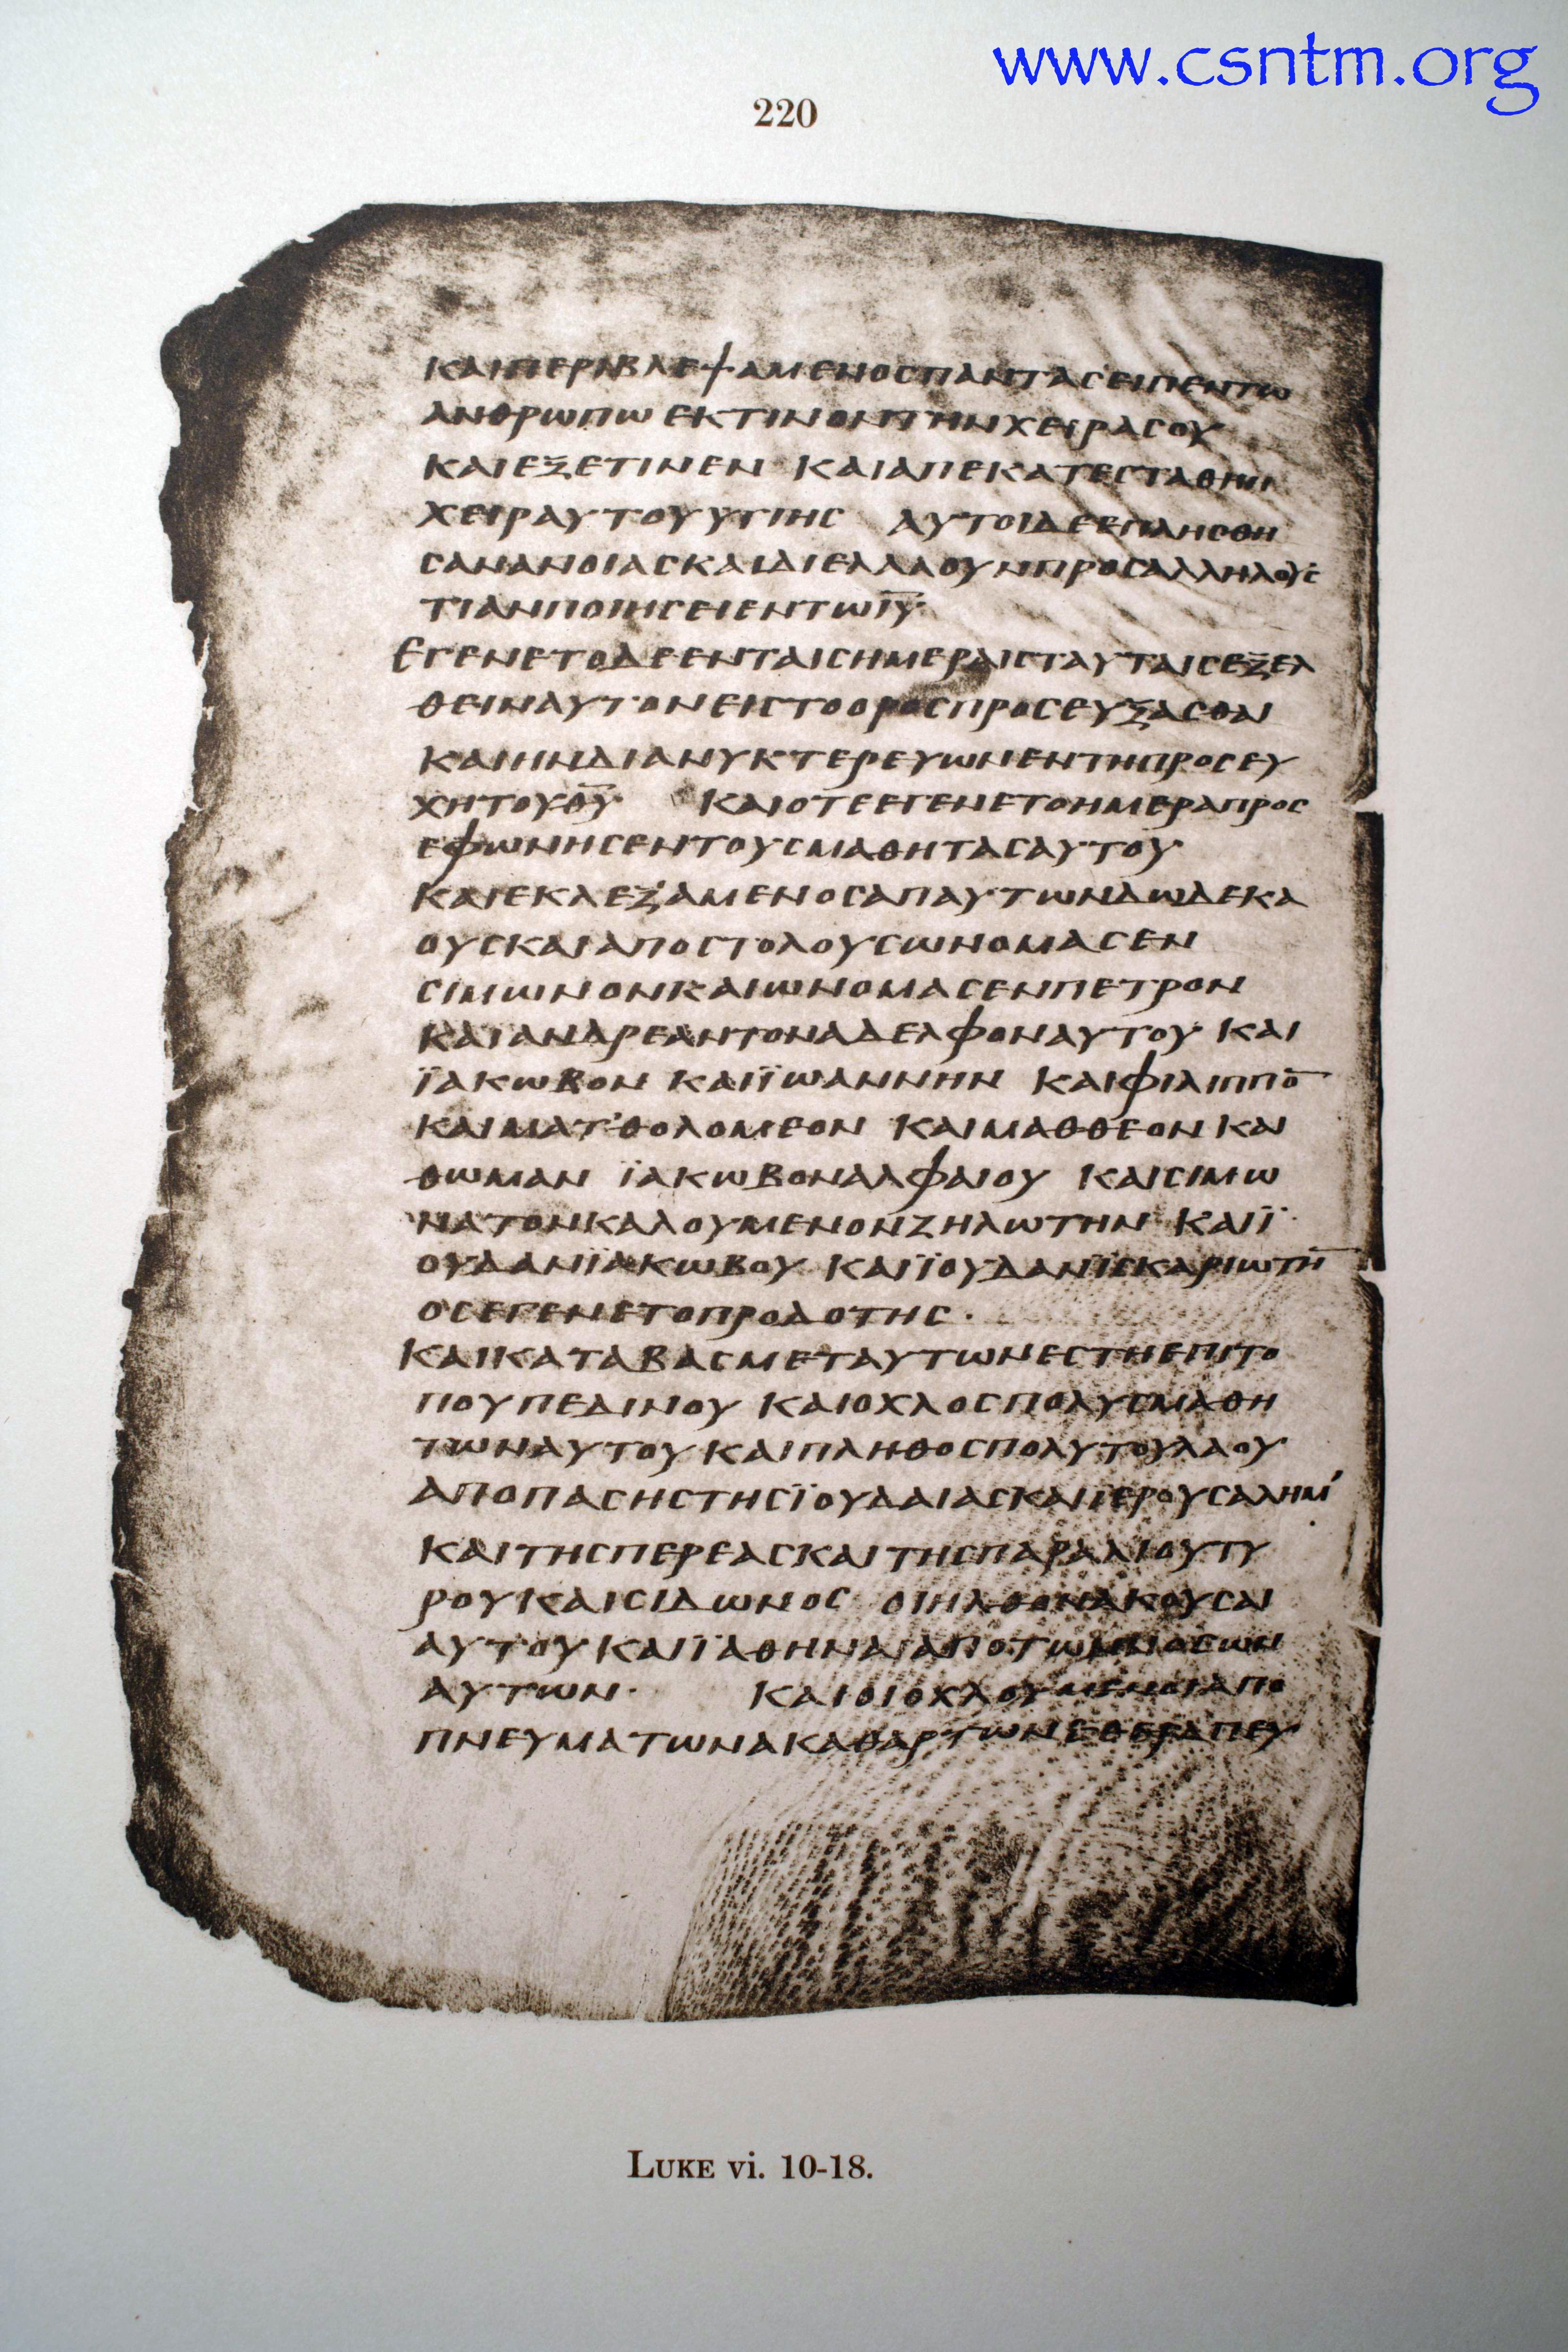 www.csntm.org
220
ΚΑΙΠΕΡΙΒΛΕΨΑΜΕΝΟϹΠΑΝΤΑϹΕΙΠΕΝΤΩ
ΑΝΘΡΩΠΩ ΕΚΤΙΝΟΝΤΗΝΧΕΙΡΑϹΟΥ
ΚΑΙΕΞΕΤΙΝΕΝ ΚΑΙΑΠΕΚΑΤΕϹΤΑΘΗΗ
ΧΕΙΡΑΥΤΟΥΥΓΙΗϹ ΑΥΤΟΙΔΕΕΠΛΗϹΘΗ
ϹΑΝΑΝΟΙΑϹΚΑΙΔΙΕΛΑΛΟΥΝΠΡΟϹΑΛΛΗΛΟΥϹ
ΤΙΑΝΠΟΙΗϹΕΙΕΝΤΩΙ̅Υ̅·
ΕΓΕΝΕΤΟΔΕΕΝΤΑΙϹΗΜΕΡΑΙϹΤΑΥΤΑΙϹΕΞΕΛ
ΘΕΙΝΑΥΤΟΝΕΙϹΤΟΟΡΟϹΠΡΟϹΕΥΞΑϹΘΑΙ
ΚΑΙΗΝΔΙΑΝΥΚΤΕΡΕΥΩΝΕΝΤΗΠΡΟϹΕΥ
ΧΗΤΟΥΘ̅Υ̅· ΚΑΙΟΤΕΕΓΕΝΕΤΟΗΜΕΡΑΠΡΟϹ
ΕΦΩΝΗϹΕΝΤΟΥϹΜΑΘΗΤΑϹΑΥΤΟΥ
ΚΑΙΕΚΛΕΞΑΜΕΝΟϹΑΠΑΥΤΩΝΔΩΔΕΚΑ
ΟΥϹΚΑΙΑΠΟϹΤΟΛΟΥϹΩΝΟΜΑϹΕΝ
ϹΙΜΩΝΟΝΚΑΙΩΝΟΜΑϹΕΝΠΕΤΡΟΝ
ΚΑΙΑΝΔΡΕΑΝΤΟΝΑΔΕΛΦΟΝΑΥΤΟΥ ΚΑΙ
ΪΑΚΩΒΟΝ ΚΑΙΪΩΑΝΝΗΝ ΚΑΙΦΙΛΙΠΠΟ̅
ΚΑΙΜΑΤ'ΘΟΛΟΜΕΟΝ ΚΑΙΜΑΘΘΕΟΝΚΑΙ
ΘΩΜΑΝ ΪΑΚΩΒΟΝΑΛΦΑΙΟΥ ΚΑΙϹΙΜΩ
ΝΑΤΟΝΚΑΛΟΥΜΕΝΟΝΖΗΛΩΤΗΝ ΚΑΙΪ
ΟΥΔΑΝΪΑΚΩΒΟΥ ΚΑΙΪΟΥΔΑΝΪϹΚΑΡΙΩΤΗ̅
ΟϹΕΓΕΝΕΤΟΠΡΟΔΟΤΗϹ·
ΚΑΙΚΑΤΑΒΑϹΜΕΤΑΥΤΩΝΕϹΤΗΕΠΙΤΟ
ΠΟΥΠΕΔΙΝΟΥ ΚΑΙΟΧΛΟϹΠΟΛΥϹΜΑΘΗ
ΤΩΝΑΥΤΟΥΚΑΙΠΛΗΘΟϹΠΟΛΥΤΟΥΛΑΟΥ
ΑΠΟΠΑϹΗϹΤΗϹΪΟΥΔΑΙΑϹΚΑΙΪΕΡΟΥϹΑΛΗΜ'
ΚΑΙΤΗϹΠΕΡΕΑϹΚΑΙΤΗϹΠΑΡΑΛΙΟΥΤΥ
ΡΟΥΚΑΙϹΙΔΩΝΟϹ ΟΙΗΛΘΟΝΑΚΟΥϹΑΙ
ΑΥΤΟΥΚΑΙΪΑΘΗΝΑΙΑΠΟΤΩΝΝΟϹΩΝ
ΑΥΤΩΝ· ΚΑΙΟΙΟΧΛΟΥΜΕΝΟΙΑΠΟ
ΠΝΕΥΜΑΤΩΝΑΚΑΘΑΡΤΩΝΕΘΕΡΑΠΕΥ
LUKE vi. 10-18.